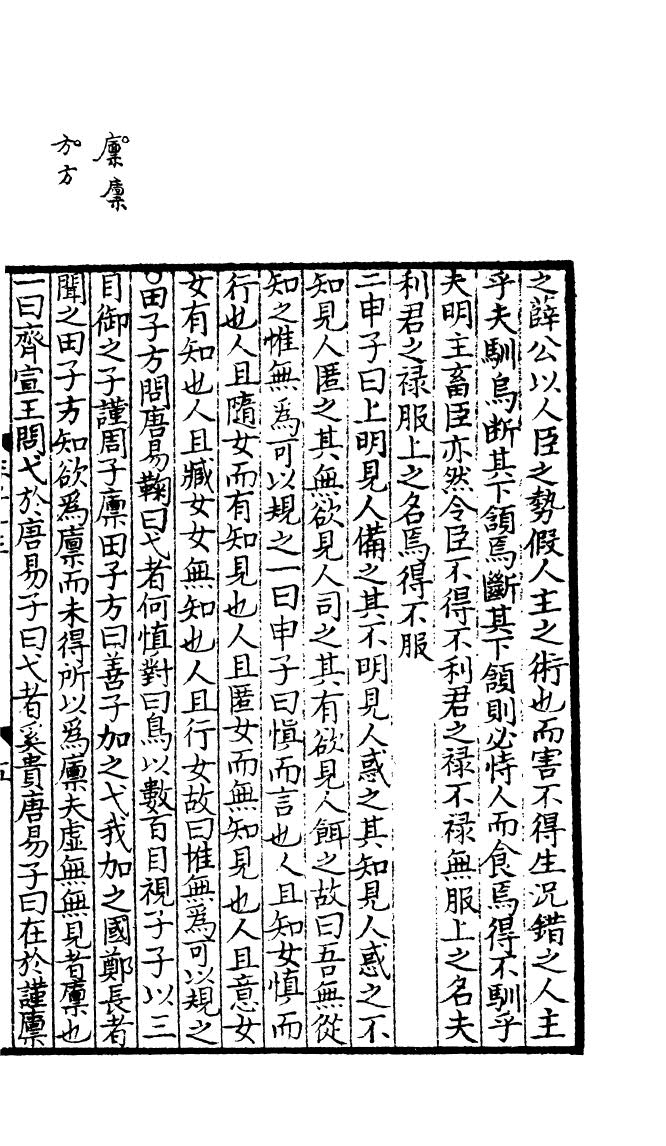 之薛公以人臣之勢假人主之術也而害不得生况錯之人主
乎夫馴烏断其下頷焉斷其下頷則必恃人而食焉得不馴乎
夫明主畜臣亦然令臣不得不利君之禄不禄無服上之名夫
利君之禄服上之名焉得不服
二申子曰上明見人備之其不明見人惑之其知見人惑之不
知見人匿之其無欲見人司之其有欲見人餌之故曰吾無從
知之惟無爲可以規之一曰申子曰慎而言也人且知女慎而
行也人且隨女而有知見也人且匿女而無知見也人且意女
女有知也人且臧女女無知也人且行女故曰惟無爲可以規之
○田子方問唐易鞠曰弋者何慎對曰鳥以數百目視子子以三
目御之子謹周子廪田子方曰善子加之弋我加之國鄭長者
聞之田子方知欲爲廪而未得所以爲廪夫虛無無見者廪也
一曰齊宣王問弋於唐易子曰弋者奚貴唐易子曰在於謹廪
廪 廪
方 方
五